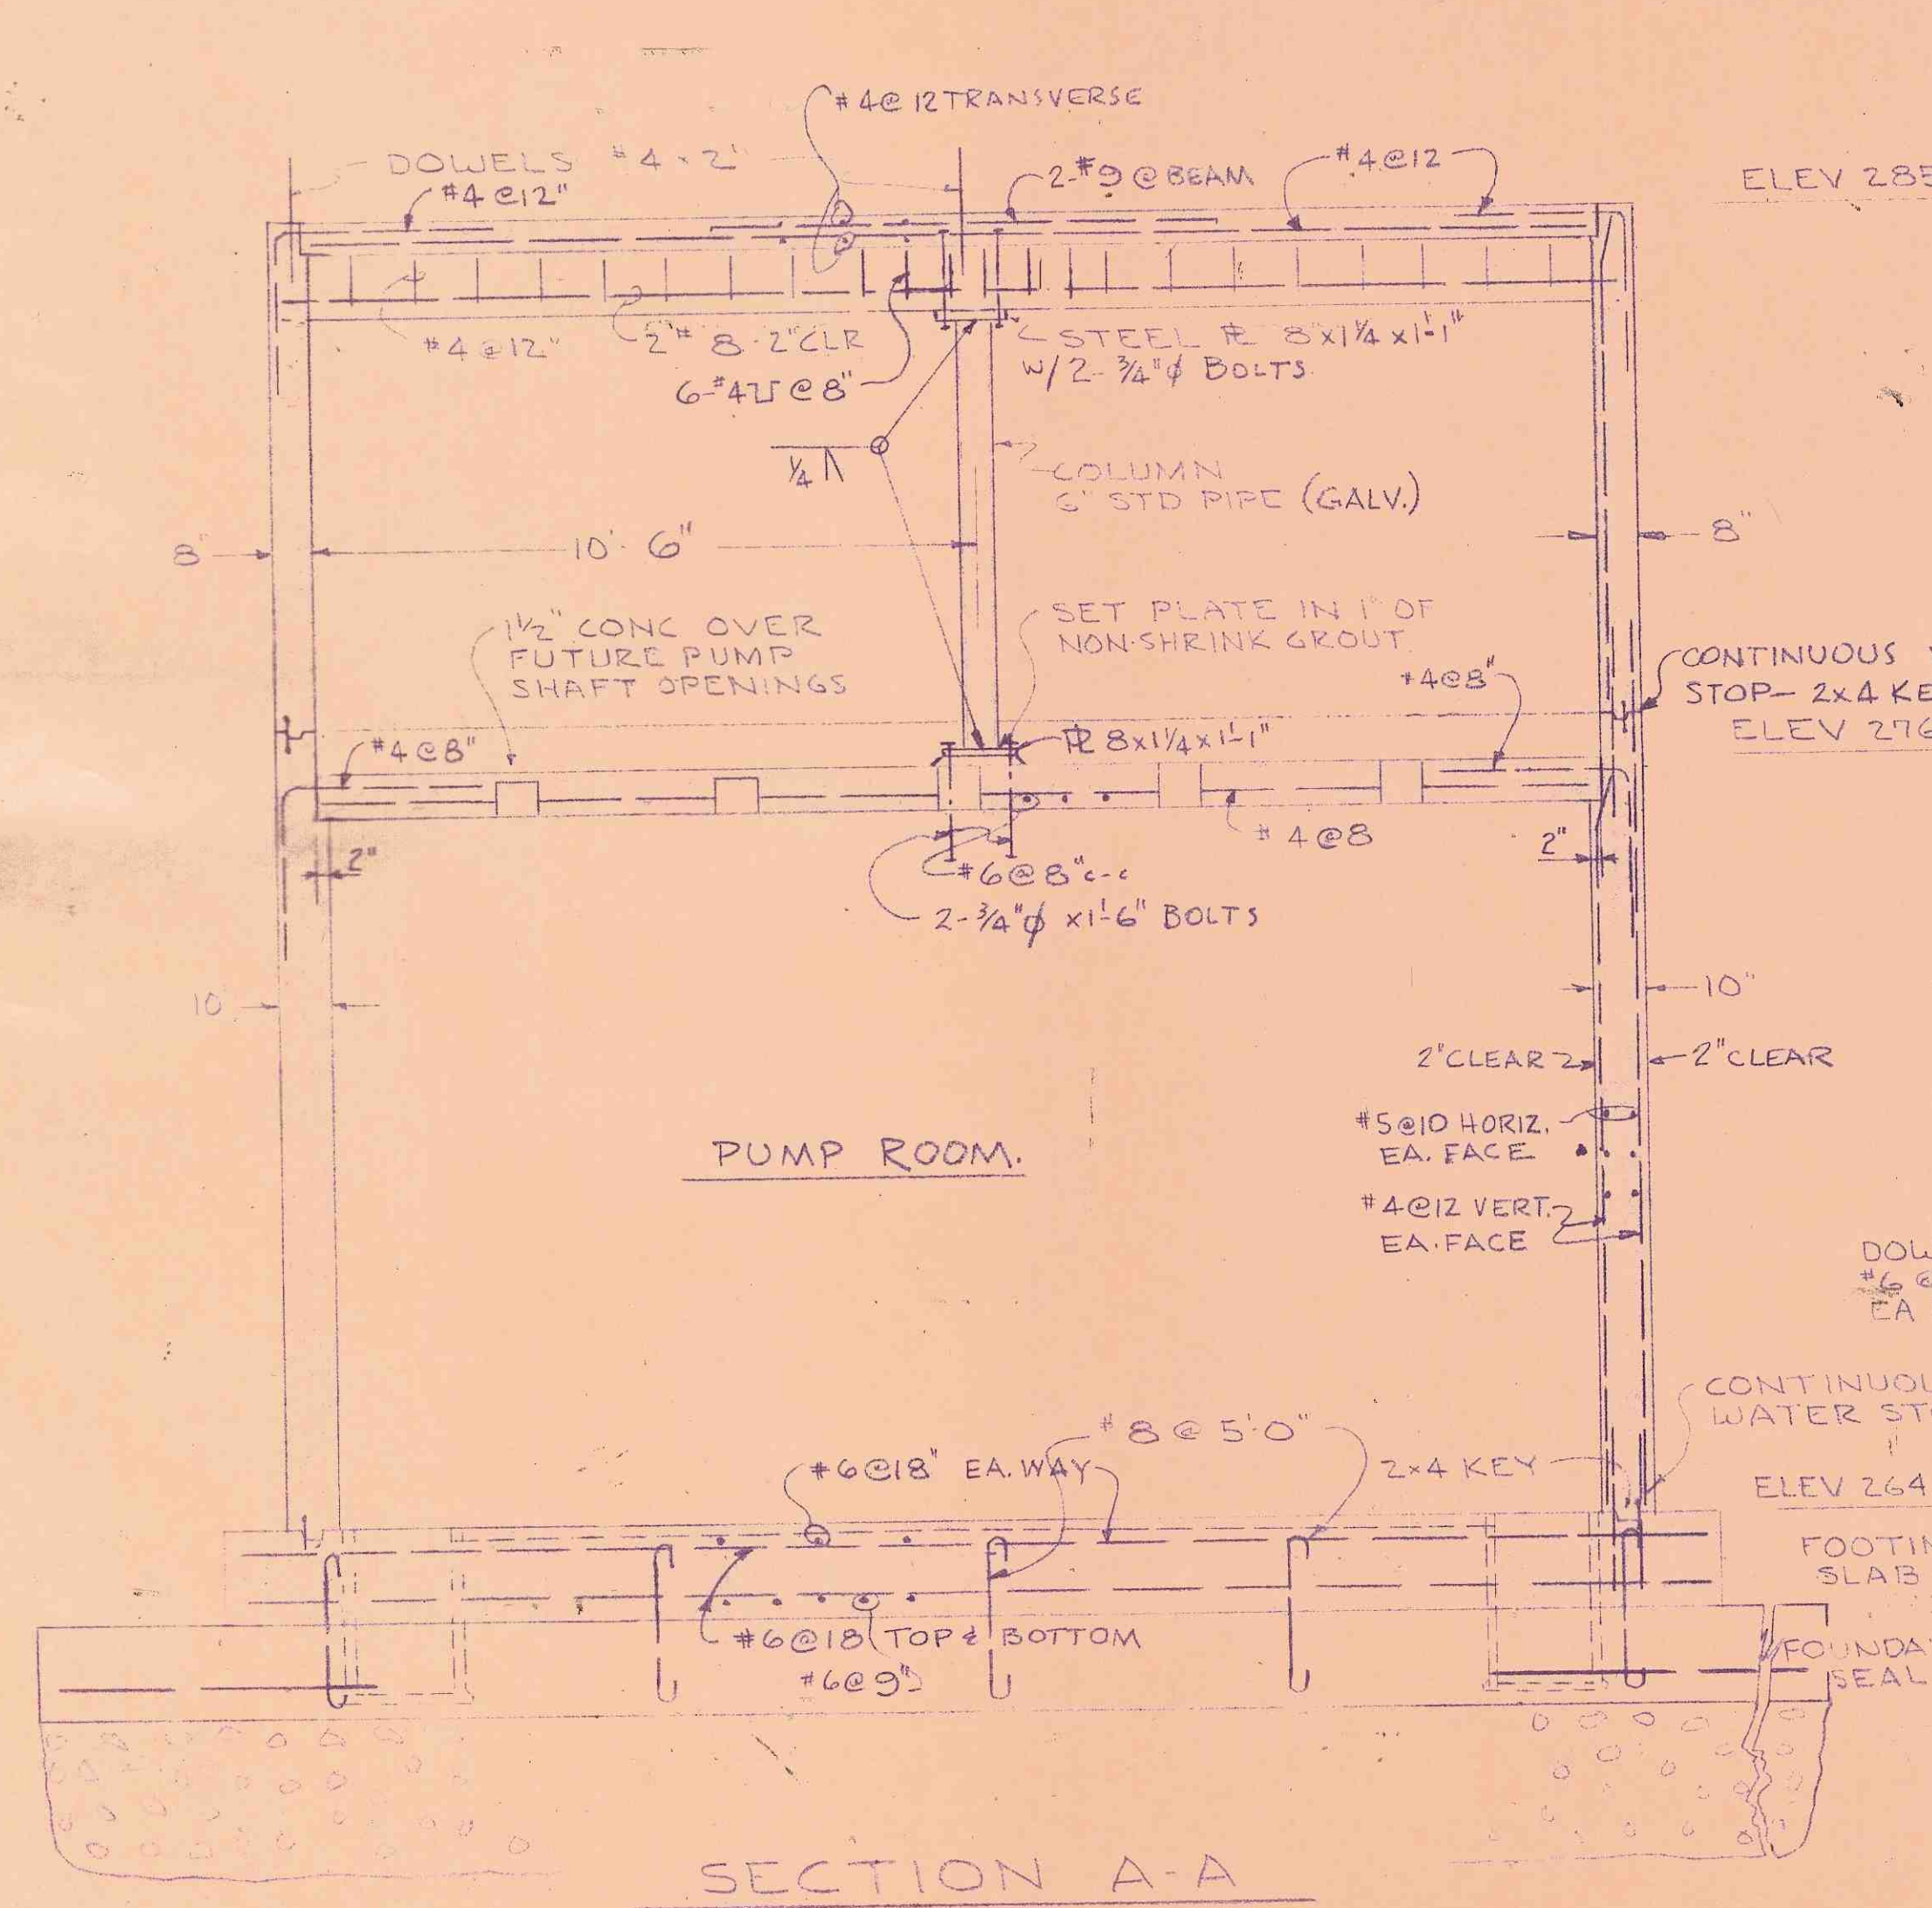 #4@12 TRANSVERSE
DOWELS #4 × 2'
#4@12"
2-#9 @ BEAM
#4@12
ELEV 285
#4@12"
2-#8-2"CLR
6-#4 @8"
STEEL PL 8"x1 1/4 x1'-1"
W/2-3/4"φ BOLTS.
1/4
COLUMN
6" STD PIPE (GALV.)
8"
10'-6"
8"
1 1/2" CONC OVER
FUTURE PUMP
SHAFT OPENINGS
SET PLATE IN 1" OF
NON-SHRINK GROUT.
#4@8"
CONTINUOUS
STOP- 2x4 KE
ELEV 276
#4@8"
PL 8x1 1/4x1'-1"
#4@8
2"
2"
#6@8"c-c
2-3/4"φ x1'-6" BOLTS
10
10"
2"CLEAR
2"CLEAR
#5@10 HORIZ.
EA. FACE
PUMP ROOM.
#4@12 VERT.
EA. FACE
DOW
#6 @
EA
CONTINUOU
WATER ST
#8 @ 5'0"
#6@18" EA. WAY
2x4 KEY
ELEV 264
FOOTIN
SLAB
#6@18 TOP & BOTTOM
#6@9"
FOUNDA
SEAL
SECTION A-A